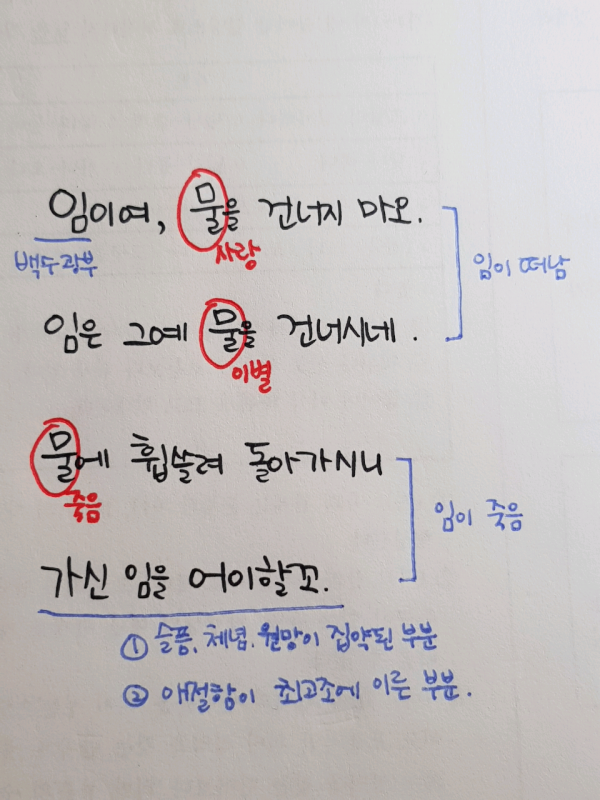 임이여, 물을 건너지 마오.
백수광부
사랑
임이 떠남
임은 그예 물을 건너시네.
이별
물에 휩쓸려 돌아가시니
죽음
임이 죽음
가신 임을 어이할꼬.
① 슬픔, 체념, 원망이 집약된 부분
② 애절함이 최고조에 이른 부분.